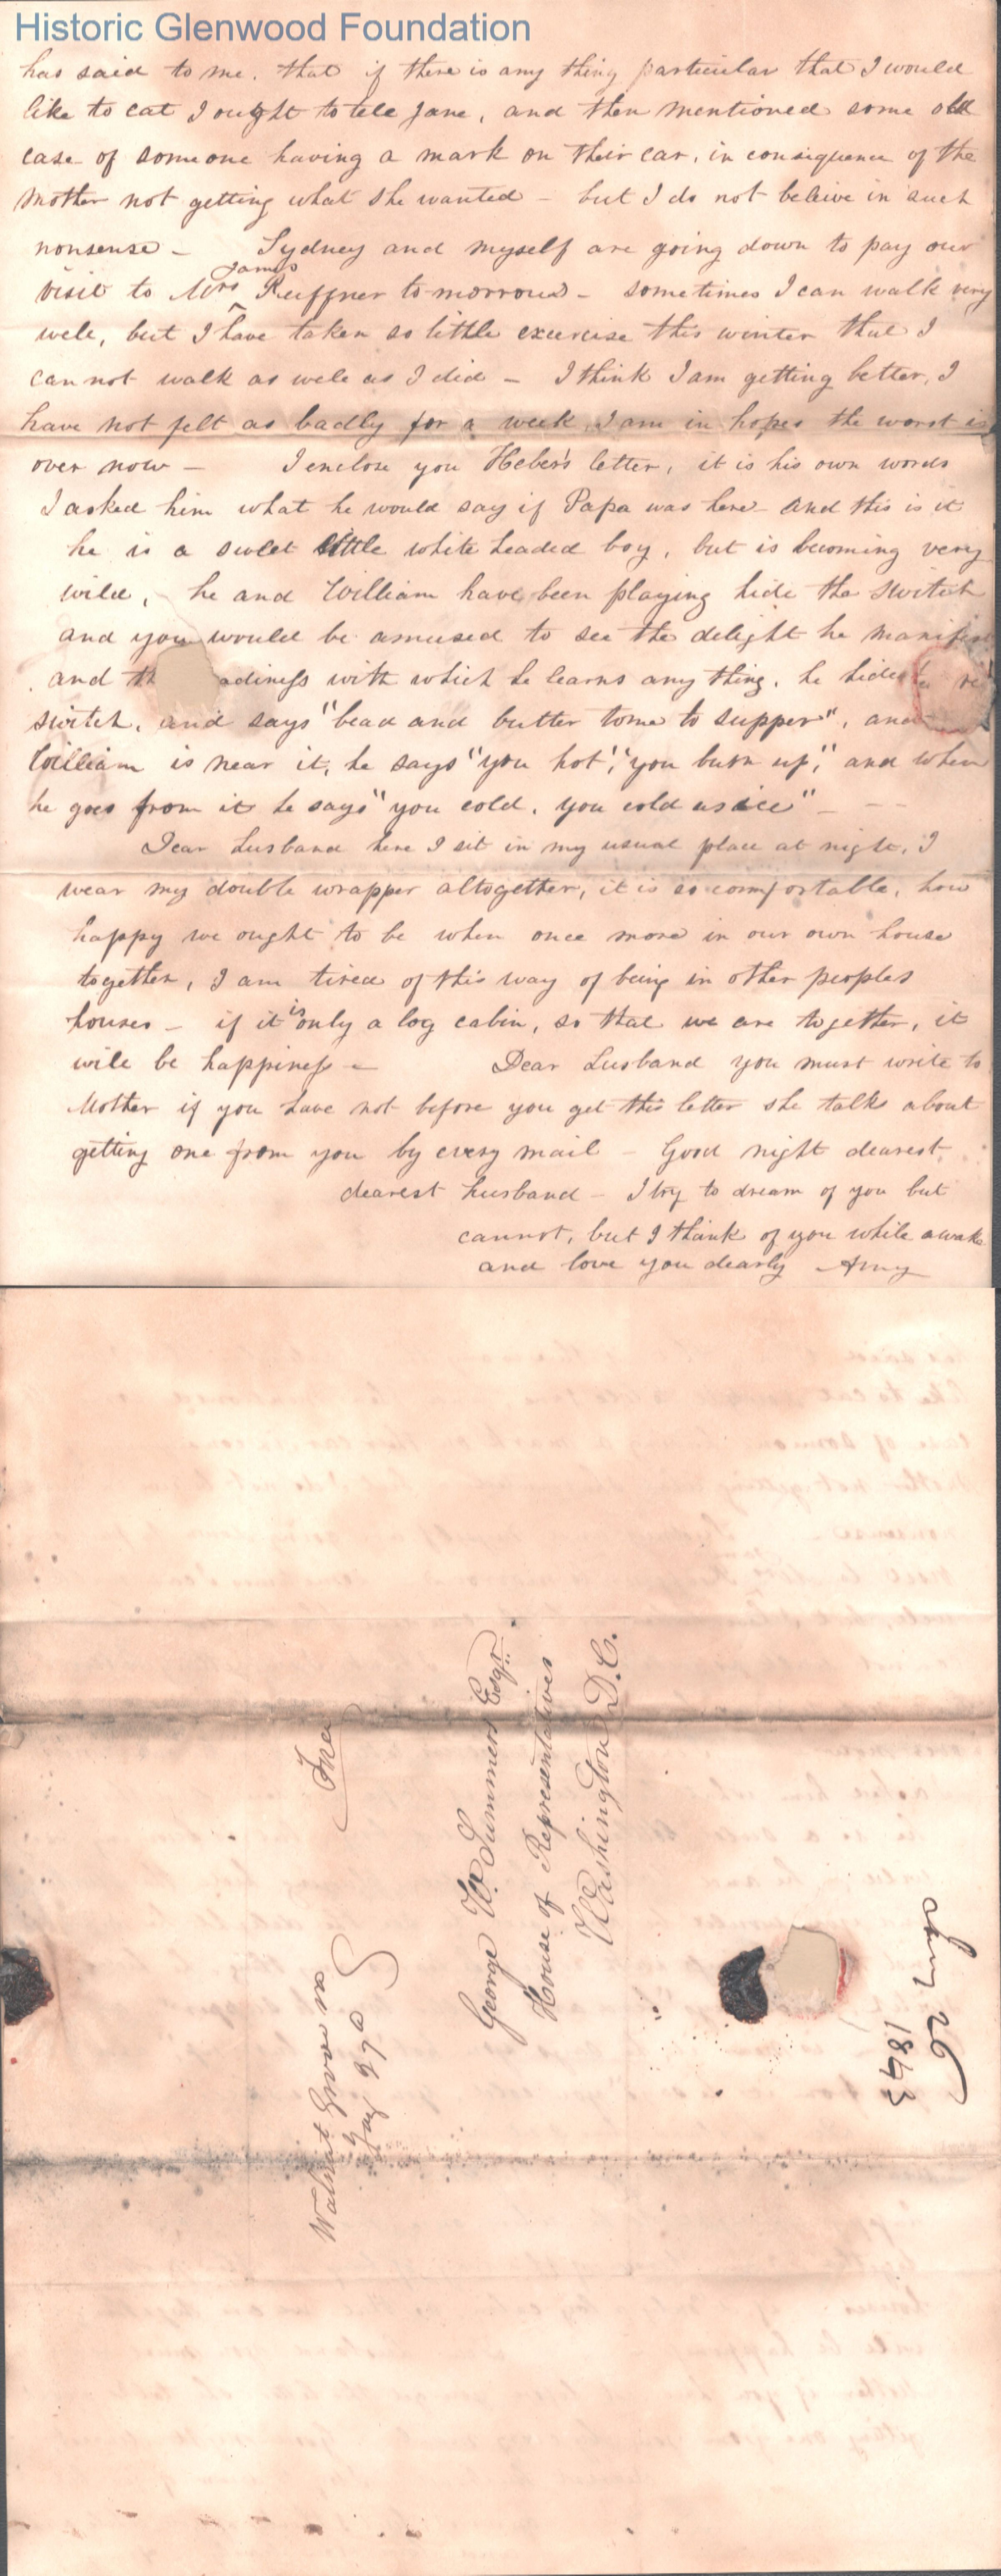 Historic Glenwood Foundation
has said to me. that if there is any thing particular that I would
like to eat I ought to tell Jane, and then mentioned some old
case of someone having a mark on their ear, in consequence of the
Mother not getting what she wanted – but I do not beleive in such
nonsense – Sydney and myself are going down to pay our
James
visit to Mrs ^ Ruffner tomorrow – sometimes I can walk very
well, but I have taken so little exercise this winter that I
can not walk as well as I did – I think I am getting better, I
have not felt as badly for a week I am in hopes the worst is
over now – I enclose you Heber's letter, it is his own words
I asked him what he would say if Papa was here and this is it
he is a sweet little white headed boy, but is becoming very
wild, he and William have been playing hide the switch
and you would be amused to see the delight he manifest
and th adiness with which he learns any thing. he hides
switch, and says "bead and butter tome to supper", and
William is near it, he says "you hot", "you burn up", and when
he goes from it he says "you cold, you cold as ice" –
Dear husband here I sit in my usual place at night, I
wear my double wrapper altogether, it is so comfortable, how
happy we ought to be when once more in our own house
together, I am tired of this way of being in other peoples
houses – if it is only a log cabin, so that we are together, it
will be happiness – Dear husband you must write to
Mother if you have not before you get this letter she talks about
getting one from you by every mail – Good night dearest
dearest husband – I try to dream of you but
cannot, but I think of you while awake
and love you dearly Amy
Free
George W. Summers Esqr.
House of Representatives
Washington D.C.
Walnut Grove
Jay 27
Amy 26
1843